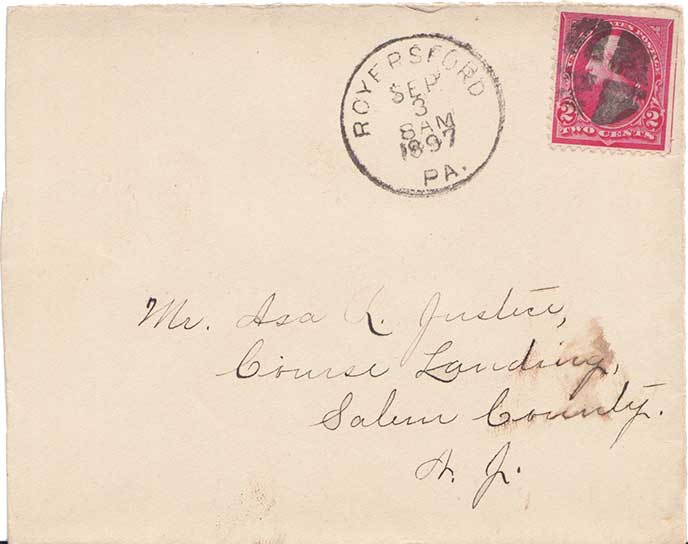 ROYERSFORD
SEP
3
8 AM
1897
PA.
UNITED STATES POSTAGE
2 2
TWO CENTS
Mr. Asa R. Justice,
Course Landing,
Salem County.
N. J.